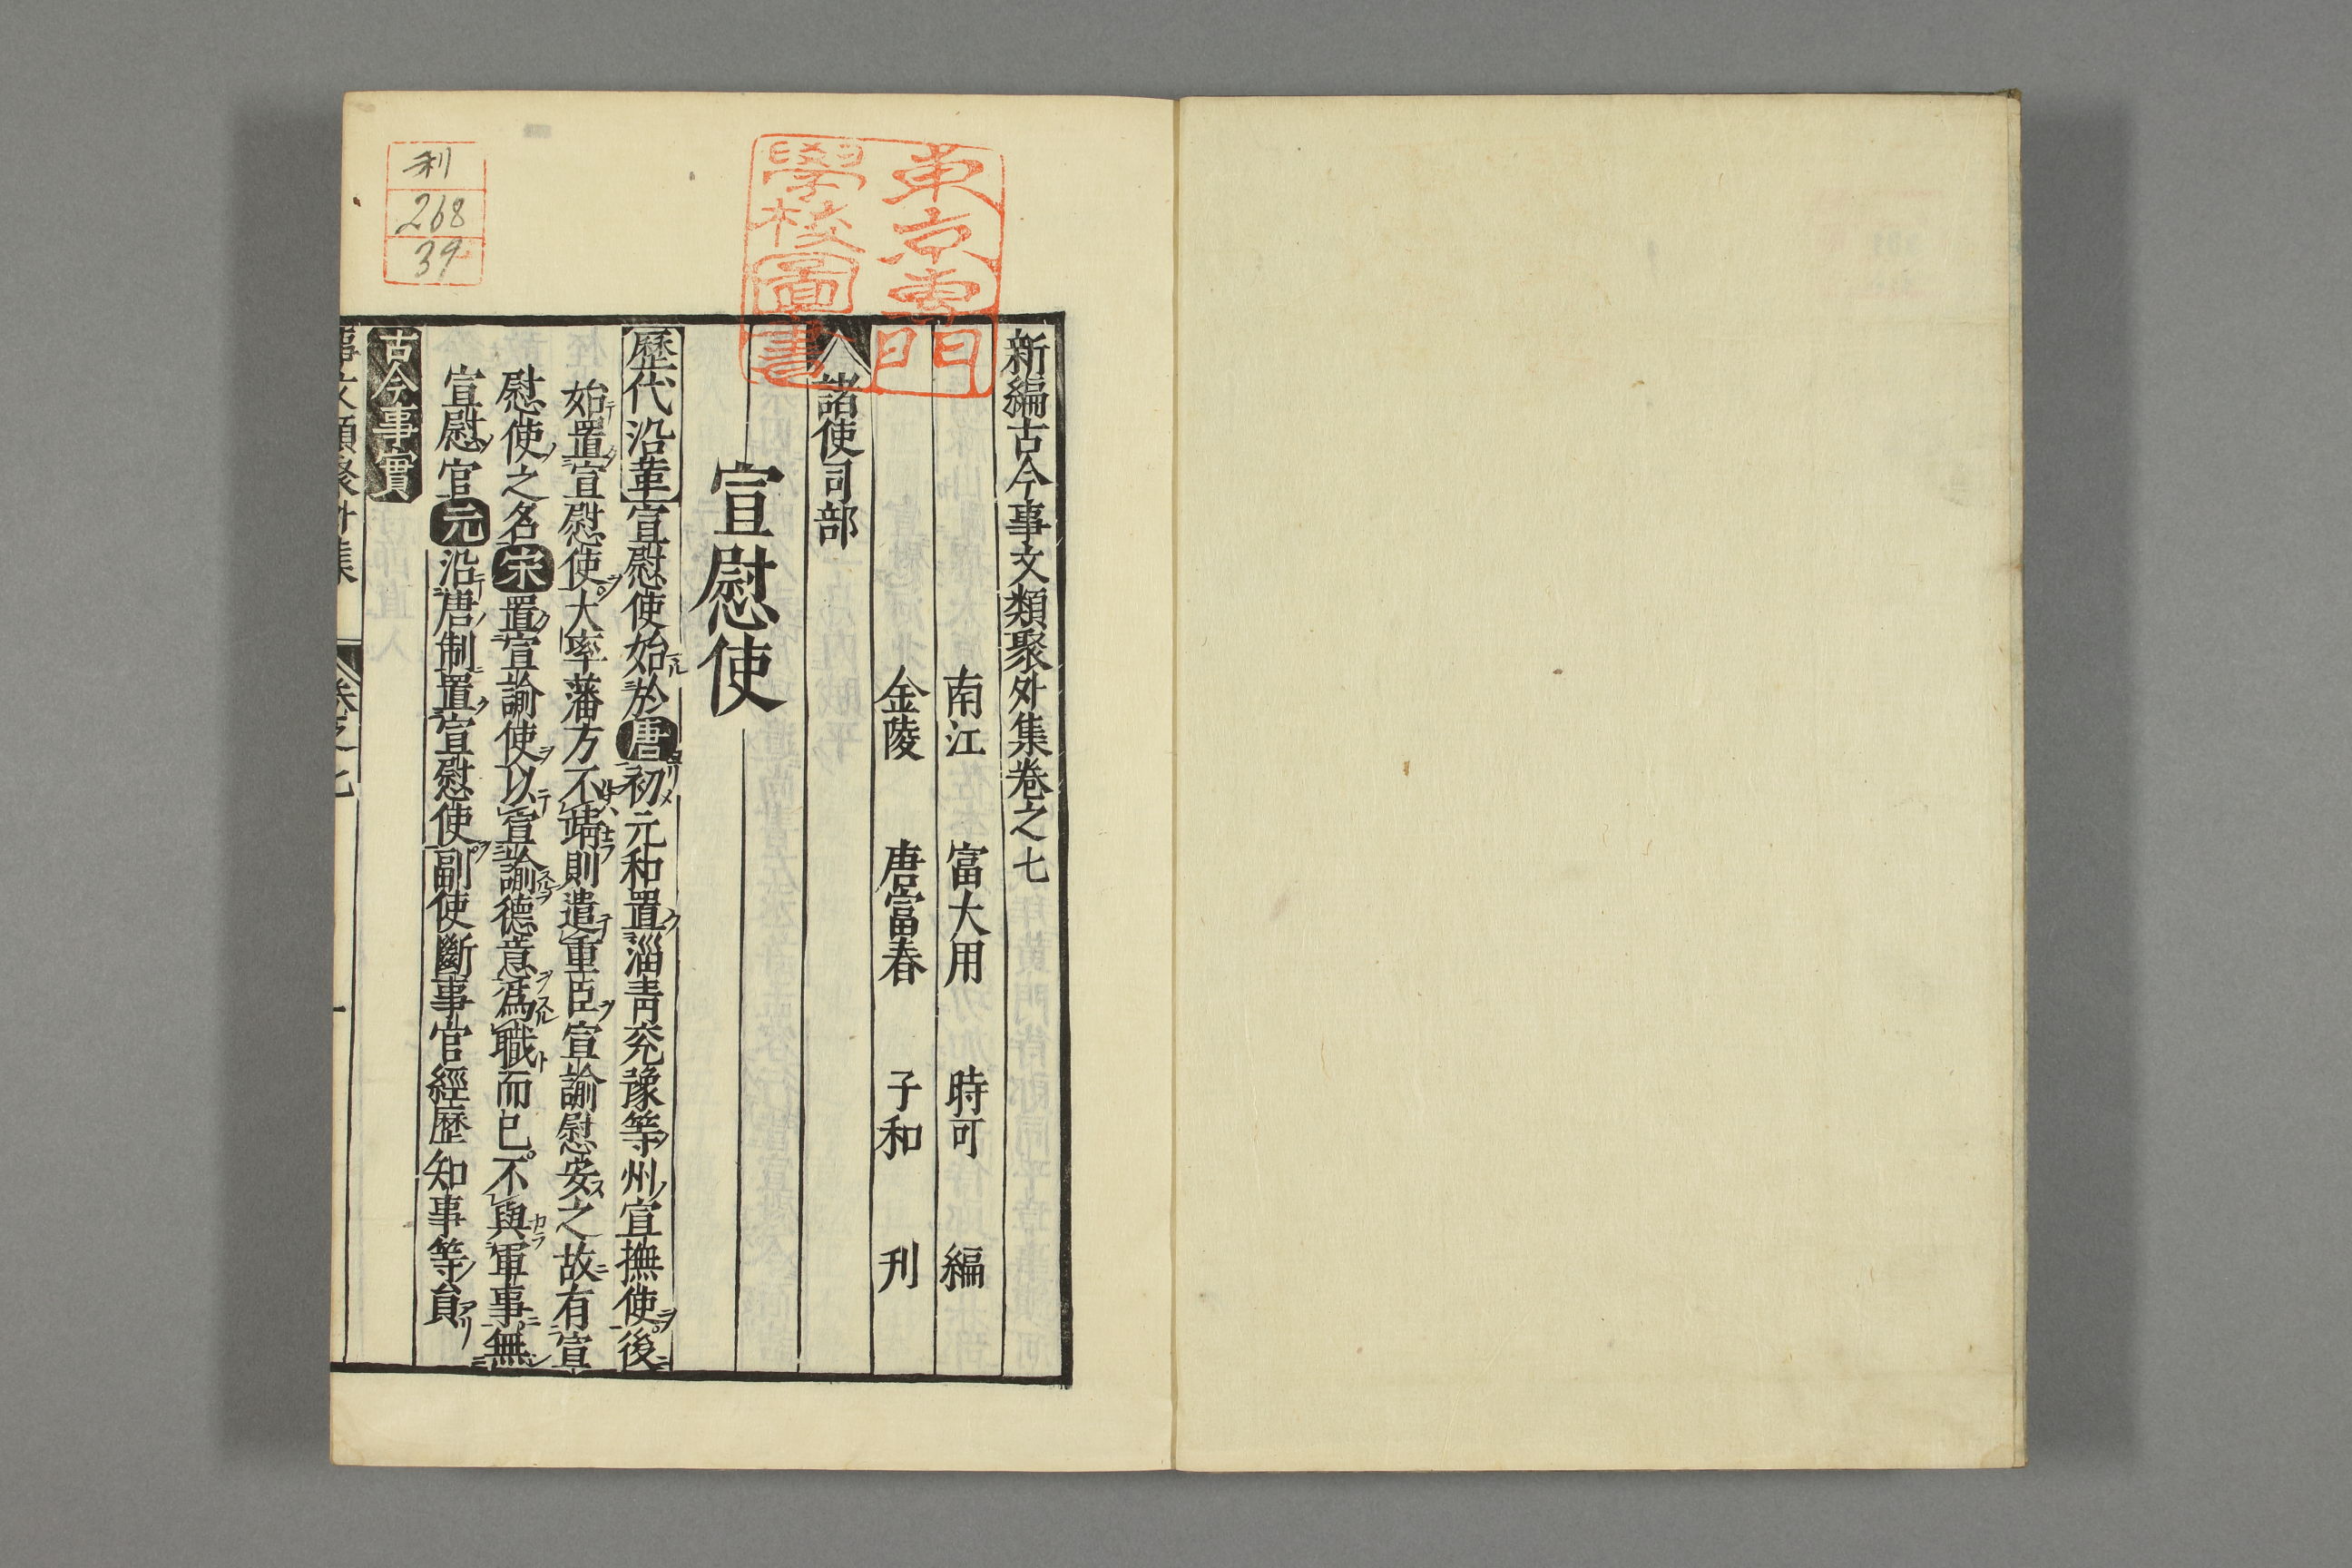 東京專門
學校圖書
利
268
39
新編古今事文類聚外集卷之七
南江 富大用 時可 編
金陵 唐富春 子和 刊
諸使司部
宣慰使
歷代沿革宣慰使始於唐初元和置淄青兗豫等州宣撫使後
始置宣慰使大率藩方不靖則遣重臣宣諭慰安之故有宣
慰使之名宋置宣諭使以宣諭德意爲職而已不與軍事無
宣慰官元沿唐制置宣慰使副使斷事官經歷知事等員
古今事實
事文類聚外集 卷之七 一